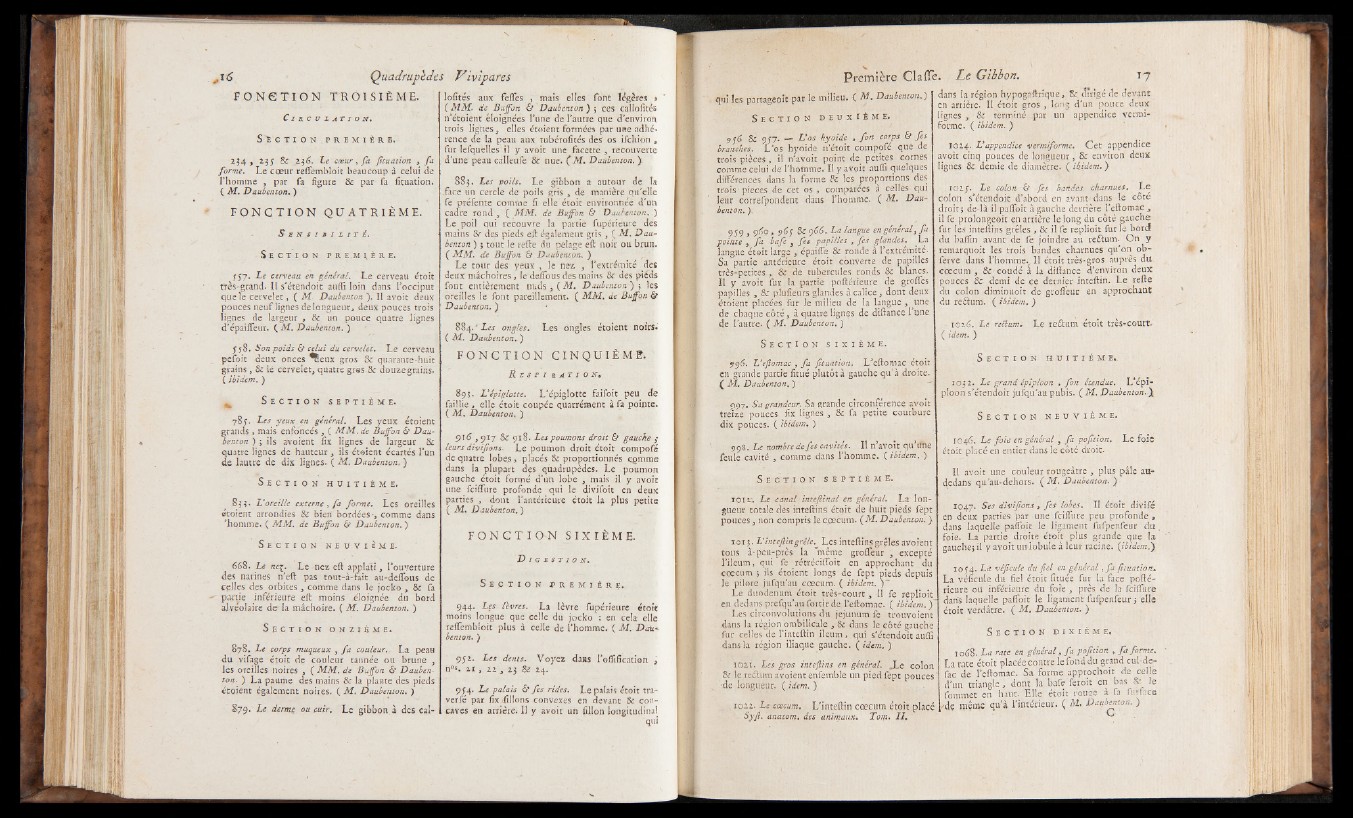 16 Quadrupèdes Vivipares
FONCTION TROISIÈME.
CIRCULATION.
SECTION PREMIÈRE.
234, 235 & 236. Le cœur, ſa ſituation, ſa
forme. Le cœur reſſembloit beaucoup à celui de
l'homme, par ſa figure & par ſa ſituation.
( M. Daubenton. )
FONCTION QUATRIÈME.
SENSIBILITÉ.
SECTION PREMIÈRE.
557. Le cerveau en général. Le cerveau étoit
très-grand. Il s'étendoit auſſi loin dans l'occiput
que le cervelet, ( M. Daubenton ). Il avoit deux
pouces neuf lignes de longueur, deux pouces trois
lignes de largeur, & un pouce quatre lignes
d'épaiſſeur. ( M. Daubenton. )
558. Son poids & celui du cervelet. Le cerveau
peſoit deux onces deux gros & quarante-huit
grains, & le cervelet, quatre gros & douze grains.
( ibidem. )
SECTION SEPTIÈME.
785. Les yeux en général. Les yeux étoient
grands, mais enfoncés, ( MM. de Buffon & Dau-
benton ) ; ils avoient ſix lignes de largeur &
quatre lignes de hauteur, ils étoient écartés l'un
de lautre de dix lignes. ( M. Daubenton. )
SECTION HUITIÈME.
833. L'oreille externe, ſa forme. Les oreilles
étoient arrondies & bien bordées, comme dans
'homme. ( MM. de Buffon & Daubenton. )
SECTION NEUVIÈME.
668. Le nez. Le nez eſt applati, l'ouverture
des narines n'eſt pas tout-à-fait au-deſſous de
celles des orbites, comme dans le jocko, & ſa
partie inférieure eſt moins éloignée du bord
alvéolaire de la mâchoire. ( M. Daubenton. )
SECTION ONZIÈME.
878. Le corps muqueux, ſa couleur. La peau
du viſage étoit de couleur tannée ou brune,
les oreilles noires, ( MM. de Buffon & Dauben-
ton. ) La paume des mains & la plante des pieds
étoient également noires. ( M. Daubenton. )
879. Le derme ou cuir. Le gibbon à des cal-
loſités aux feſſes, mais elles ſont légères,
( MM. de Buffon & Daubenton ) ; ces calloſités
n'étoient éloignées l'une de l'autre que d'environ
trois lignes, elles étoient formées par une adhé-
rence de la peau aux tubéroſités des os iſchion,
ſur leſquelles il y avoit une facette, recouverte
d'une peau calleuſe & nue. ( M. Daubenton. )
883. Les poils. Le gibbon a autour de la
face un cercle de poils gris, de manière qu'elle
ſe préſente comme ſi elle étoit environnée d'un
cadre rond, ( MM. de Buffon & Daubenton. )
Le poil qui recouvre la partie ſupérieure des
mains & des pieds eſt également gris, ( M. Dau-
benton ) ; tout le reſte du pelage eſt noir ou brun.
( MM. de Buffon & Daubenton. )
Le tour des yeux, le nez, l'extrémité des
deux mâchoires, le deſſous des mains & des pieds
ſont entièrement nuds, ( M. Daubenton ) ; les
oreilles le ſont pareillement. ( MM. de Buffon &
Daubenton. )
884. Les ongles. Les ongles étoient noirs.
( M. Daubenton. )
FONCTION CINQUIÈME.
RESPIRATION.
895. L'épiglotte. L'épiglotte faiſoit peu de
ſaillie, elle étoit coupée quarrément à ſa pointe.
( M. Daubenton. )
916, 917 & 918. Les poumons droit & gauche ;
leurs diviſions. Le poumon droit étoit compoſé
de quatre lobes, placés & proportionnés comme
dans la plupart des quadrupèdes. Le poumon
gauche étoit formé d'un lobe, mais il y avoit
une ſciſſure profonde qui le diviſoit en deux
parties, dont l'antérieure étoit la plus petite
( M. Daubenton. )
FONCTION SIXIÈME.
DIGESTION.
SECTION PREMIÈRE.
944. Les lèvres. La lèvre ſupérieure étoit
moins longue que celle du jocko : en cela elle
reſſembloit plus à celle de l'homme. ( M. Dau-
benton. )
952. Les dents. Voyez dans l'oſſification,
nos. 21, 22, 23 & 24.
954. Le palais & ſes rides. Le palais étoit tra-
verſé par ſix ſillons convexes en devant & con-
caves en arrière. Il y avoit un ſillon longitudinal
qui
Première Claſſe. Le Gibbon. 17
qui les partageoit par le milieu. ( M. Daubenton. )
SECTION DEUXIÈME.
956 & 957. — L'os hyoïde, ſon corps & ſes
branches. L'os hyoïde n'étoit compoſé que de
trois pièces, il n'avoit point de petites cornes
comme celui de l'homme. Il y avoit auſſi quelques
différences dans la forme & les proportions des
trois pièces de cet os, comparées à celles qui
leur correſpondent dans l'homme. ( M. Dau-
benton. )
959, 960, 965 & 966. La langue en général, ſa
pointe, ſa baſe, ſes papilles, ſes glandes. La
langue étoit large, épaiſſe & ronde à l'extrémité.
Sa partie antérieure étoit couverte de papilles
très-petites, & de tubercules ronds & blancs.
Il y avoit ſur la partie poſtérieure de groſſes
papilles, & pluſieurs glandes à calice, dont deux
étoient placées ſur le milieu de la langue, une
de chaque côté, à quatre lignes de diſtance l'une
de l'autre. ( M. Daubenton. )
SECTION SIXIÈME.
996. L'eſtomac, ſa ſituation. L'eſtomac étoit
en grande partie ſitué plutôt à gauche qu'à droite.
( M. Daubenton. )
997. Sa grandeur. Sa grande circonférence avoit
treize pouces ſix lignes, & ſa petite courbure
dix pouces. ( ibidem. )
998. Le nombre de ſes cavités. Il n'avoit qu'une
ſeule cavité, comme dans l'homme. ( ibidem. )
SECTION SEPTIÈME.
1012. Le canal inteſtinal en général. La lon-
gueur totale des inteſtins étoit de huit pieds ſept
pouces, non compris le cœcum. ( M. Daubenton. )
1013. L'inteſtin grêle. Les inteſtins grêles avoient
tous à-peu-près la même groſſeur, excepté
l'ileum, qui ſe rétréciſſoit en approchant du
cœcum ; ils étoient longs de ſept pieds depuis
le pilore juſqu'au cœcum. ( ibidem. )
Le duodenum étoit très-court, Il ſe replioit
en dedans preſqu'au ſortir de l'eſtomac. ( ibidem. )
Les circonvolutions du jejunum ſe trouvoient
dans la région ombilicale, & dans le côté gauche
ſur celles de l'inteſtin ileum, qui s'étendoit auſſi
dans la région iliaque gauche. ( idem. )
1021. Les gros inteſtins en général. Le colon
& le rectum avoient enſemble un pied ſept pouces
de longueur. ( idem. )
1022. Le cœcum. L'inteſtin cœcum étoit placé
Syſt. anatom. des animaux. Tom. II.
dans la région hypogaſtrique, & dirigé de devant
en arrière. Il étoit gros, long d'un pouce deux
lignes, & terminé par un appendice vermi-
forme. ( ibidem. )
1024. L'appendice vermiforme. Cet appendice
avoit cinq pouces de longueur, & environ deux
lignes & demie de diamètre. ( ibidem. )
1025. Le colon & ſes bandes charnues. Le
colon s'étendoit d'abord en avant dans le côté
droit ; de-là il paſſoit à gauche derrière l'eſtomac,
il ſe prolongeoit en arrière le long du côté gauche
ſur les inteſtins grêles, & il ſe replioit ſur le bord
du baſſin avant de ſe joindre au rectum. On y
remarquoit les trois bandes charnues qu'on ob-
ſerve dans l'homme. Il étoit très-gros auprès du
cœcum, & coudé à la diſtance d'environ deux
pouces & demi de ce dernier inteſtin. Le reſte
du colon diminuoit de groſſeur en approchant
du rectum. ( ibidem. )
1026. Le rectum. Le rectum étoit très-court.
( idem. )
SECTION HUITIÈME.
1032. Le grand épiploon, ſon étendue. L'épi-
ploon s'étendoit juſqu'au pubis. ( M. Daubenton. )
SECTION NEUVIÈME.
1046. Le foie en général, ſa poſition. Le foie
étoit placé en entier dans le côté droit.
Il avoit une couleur rougeâtre, plus pâle au-
dedans qu'au-dehors. ( M. Daubenton. )
1047. Ses diviſions, ſes lobes. Il étoit diviſé
en deux parties par une ſciſſure peu profonde,
dans laquelle paſſoit le ligament ſuſpenſeur du
foie. La partie droite étoit plus grande que la
gauche ; il y avoit un lobule à leur racine. ( ibidem. )
1054. La véſicule du fiel en général, ſa ſituation.
La véſicule du fiel étoit ſituée ſur la face poſté-
rieure ou inférieure du foie, près de la ſciſſure
dans laquelle paſſoit le ligament ſuſpenſeur ; elle
étoit verdâtre. ( M. Daubenton. )
SECTION DIXIÈME.
1068. La rate en général, ſa poſition, ſa forme.
La rate étoit placée contre le fond du grand cul-de-
ſac de l'eſtomac. Sa forme approchoit de celle
d'un triangle, dont la baſe ſeroit en bas & le
ſommet en haut. Elle étoit rouge à ſa ſurface
de même qu'à l'intérieur. ( M. Daubenton. )
C